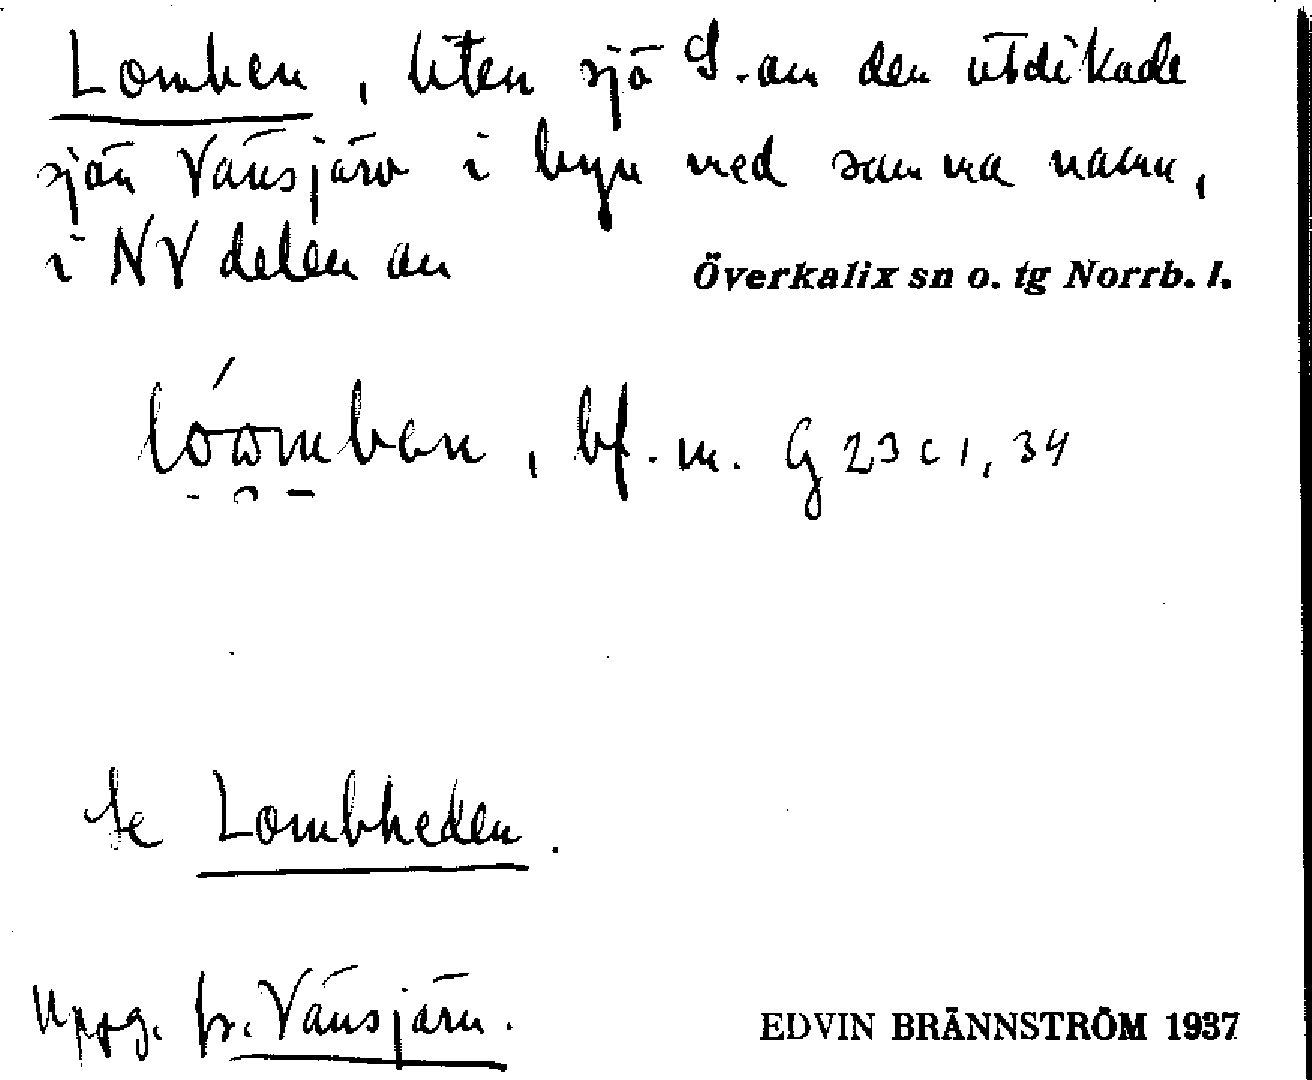 Lomben, liten sjö S. om den utdikade
sjön Vänsjärv i byn med samma namn,
i NV delen av
Överkalix sn o. tg Norrb. l.
bf. m. G 23 c 1, 34
se Lombheden.
Uppg. fr. Vänsjärv.
EDVIN BRÄNNSTRÖM 1937